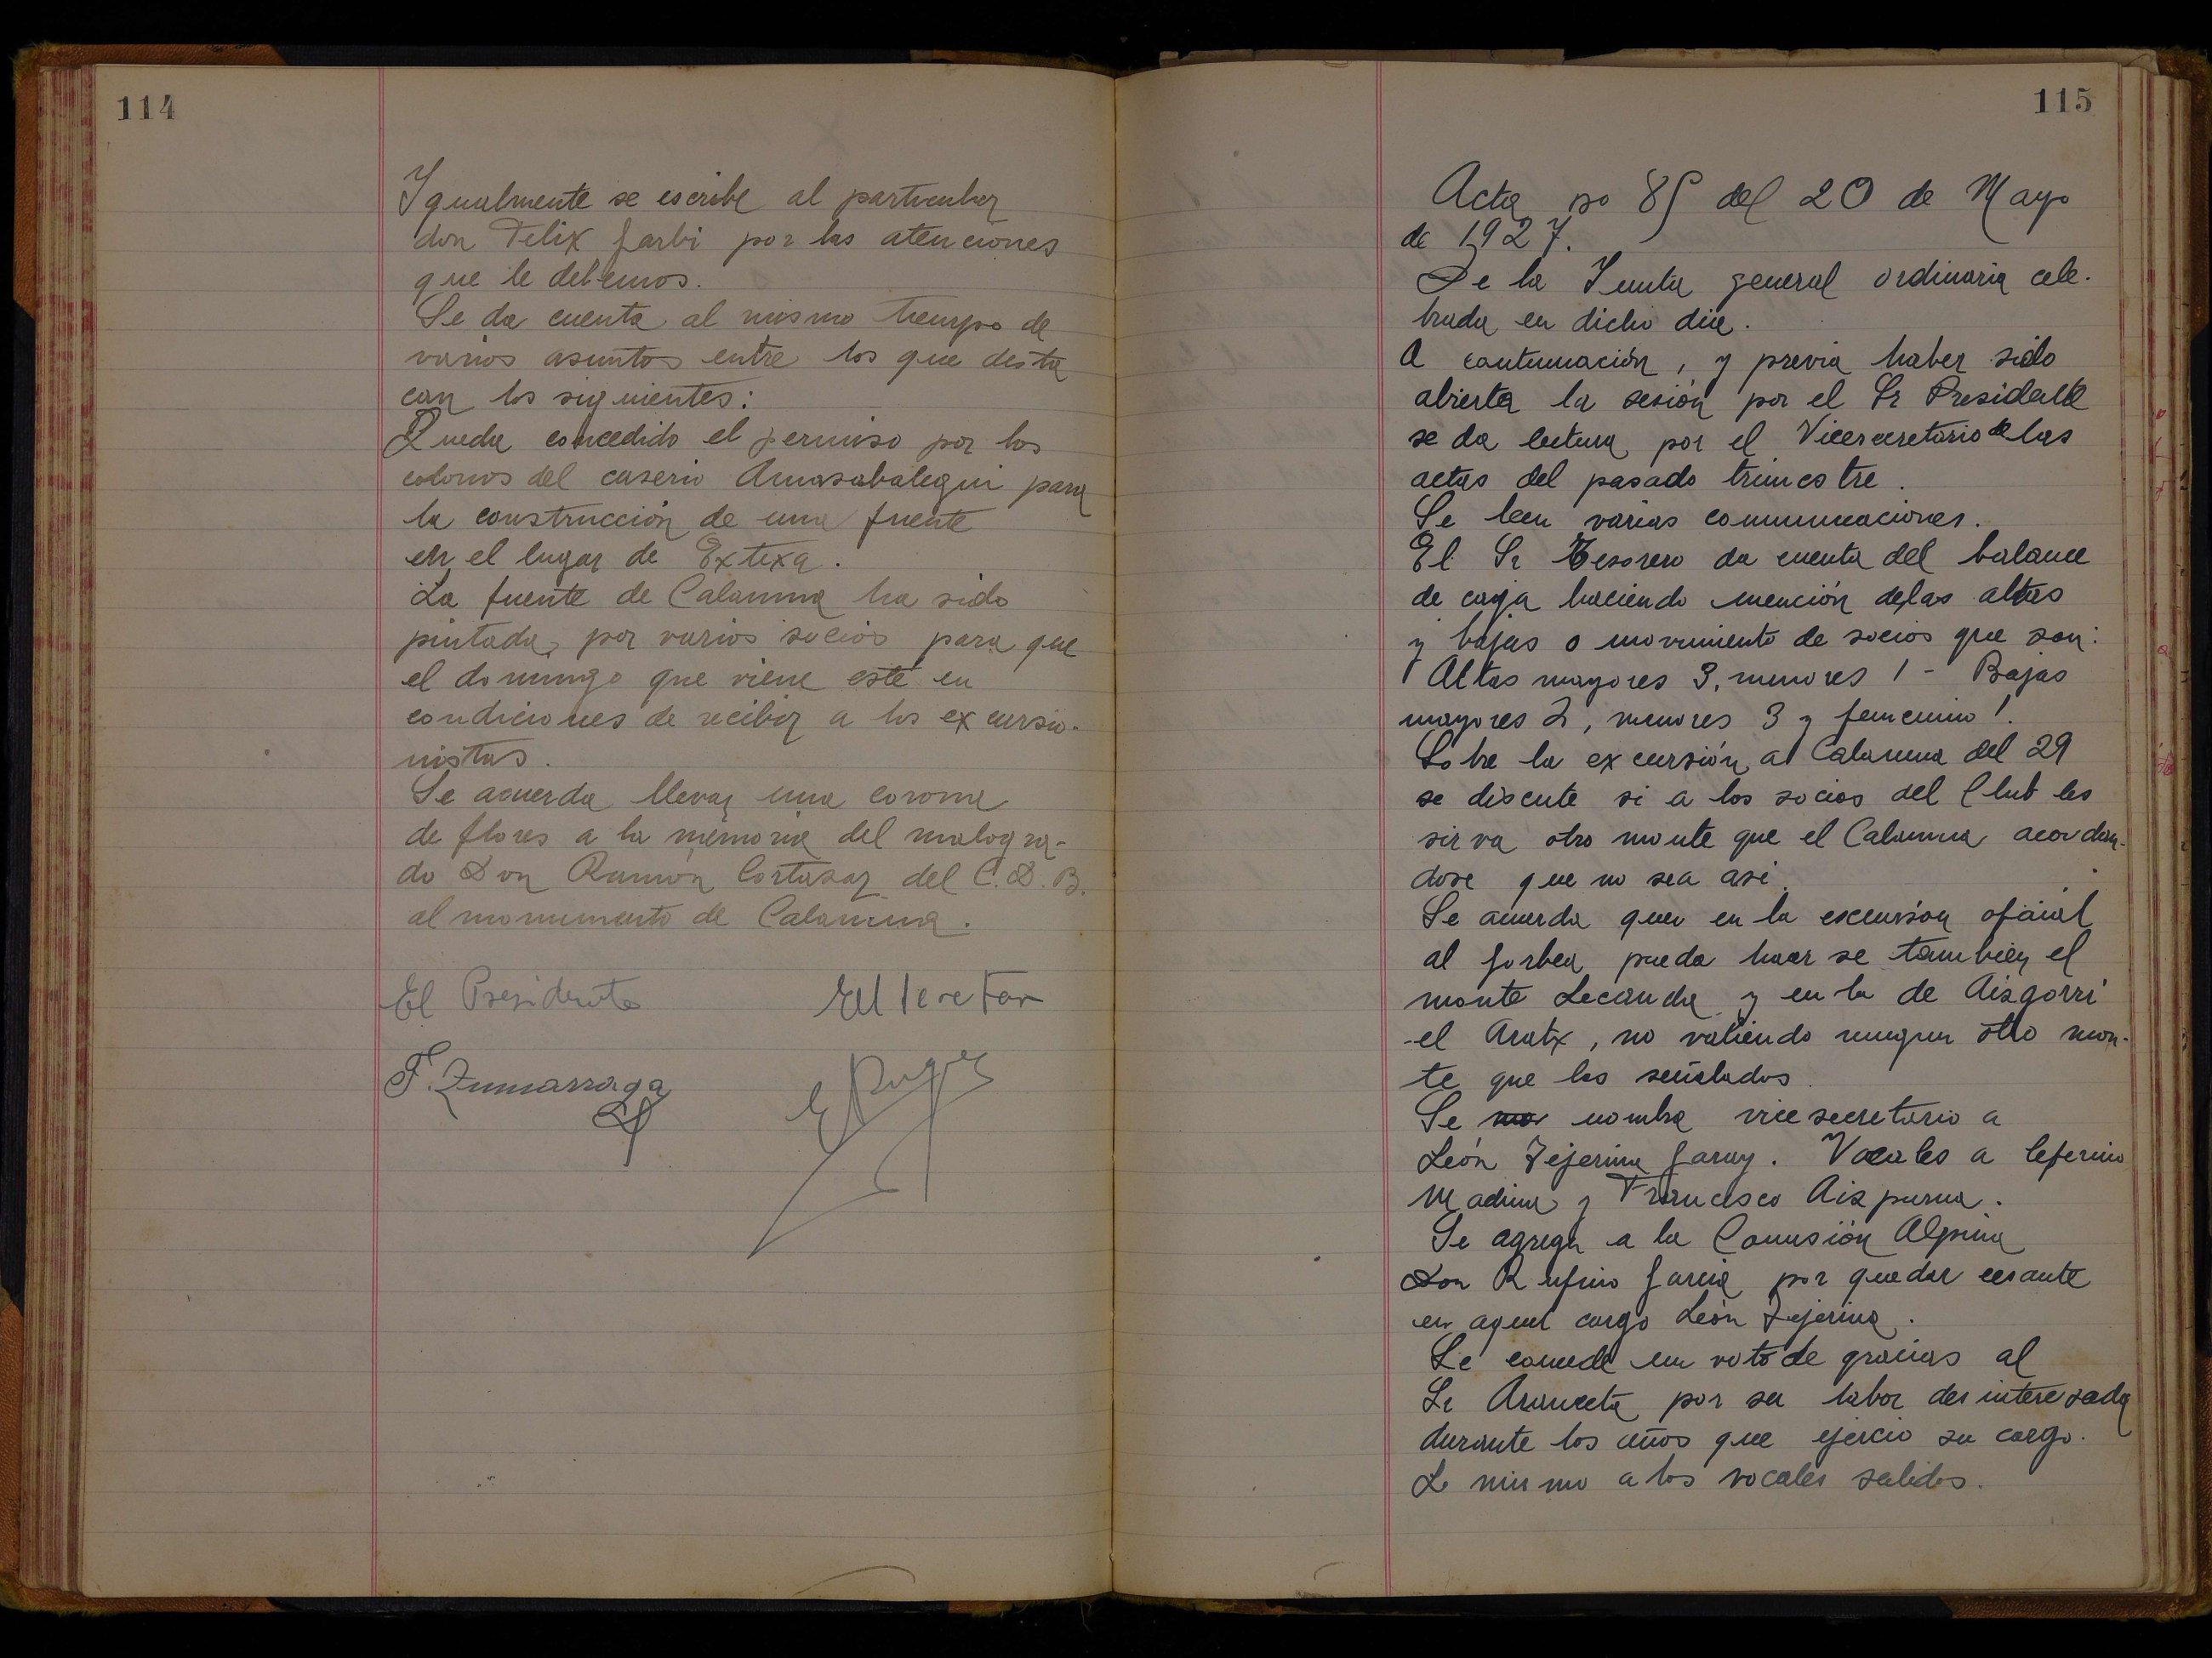 114
Igualmente se escribe al particular
don Felix Garbi por las atenciones
que le debemos.
Se da cuenta al mismo tiempo de
varios asuntos entre los que desta
can los siguientes:
Queda concedido el permiso por los
colonos del caserio Amasabalegui para
la construcción de una fuente
en el lugar de Extexa.
La fuente de Calamua ha sido
pintada, por varios socios para que
el domingo que viene esté en
condiciones de recibir a los excursio-
nistas.
Se acuerda llevar una corona
de flores a la memoria del malogra-
do Don Ramón Cortasar del C.D.B.
al monumento de Calamua.
El Presidente El Secretar
F. Zumarraga
115
Acta no 85 del 20 de Mayo
de 1927.
De la Junta general ordinaria cele-
brada en dicho dia.
A continuación, y previa haber sido
abierta la sesión por el Sr Presidente
se da lectura por el Vicesecretario de las
actas del pasado trimestre.
Se leen varias comunicaciones.
El Sr Tesorero da cuenta del balance
de caja haciendo mención de las altas
y bajas o movimiento de socios que son:
Altas mayores 3, menores 1 - Bajas
mayores 2, menores 3 y femenino 1.
Sobre la excursión al Calamua del 29
se discute si a los socios del Club les
sirva otro monte que el Calamua acordan-
dose que no sea asi.
Se acuerda que en la escursion oficial
al Gorbea pueda hacer se tambien el
monte Lecanda y en la de Aizgorri
el Aratx, no valiendo ningun otro mon-
te que los señalados.
Se nombra vicesecretario a
León Tejerina Garay. Vocales a Ceferino
Madina y Francisco Aizpurua.
Se agrega a la Comisión Alpina
Don Rufino Garcia por quedar cesante
en aquel cargo León Tejerina.
Se concede un voto de gracias al
Sr Aranceta por su labor desinteresada
durante los años que ejercio su cargo.
Lo mismo a los vocales salidos.